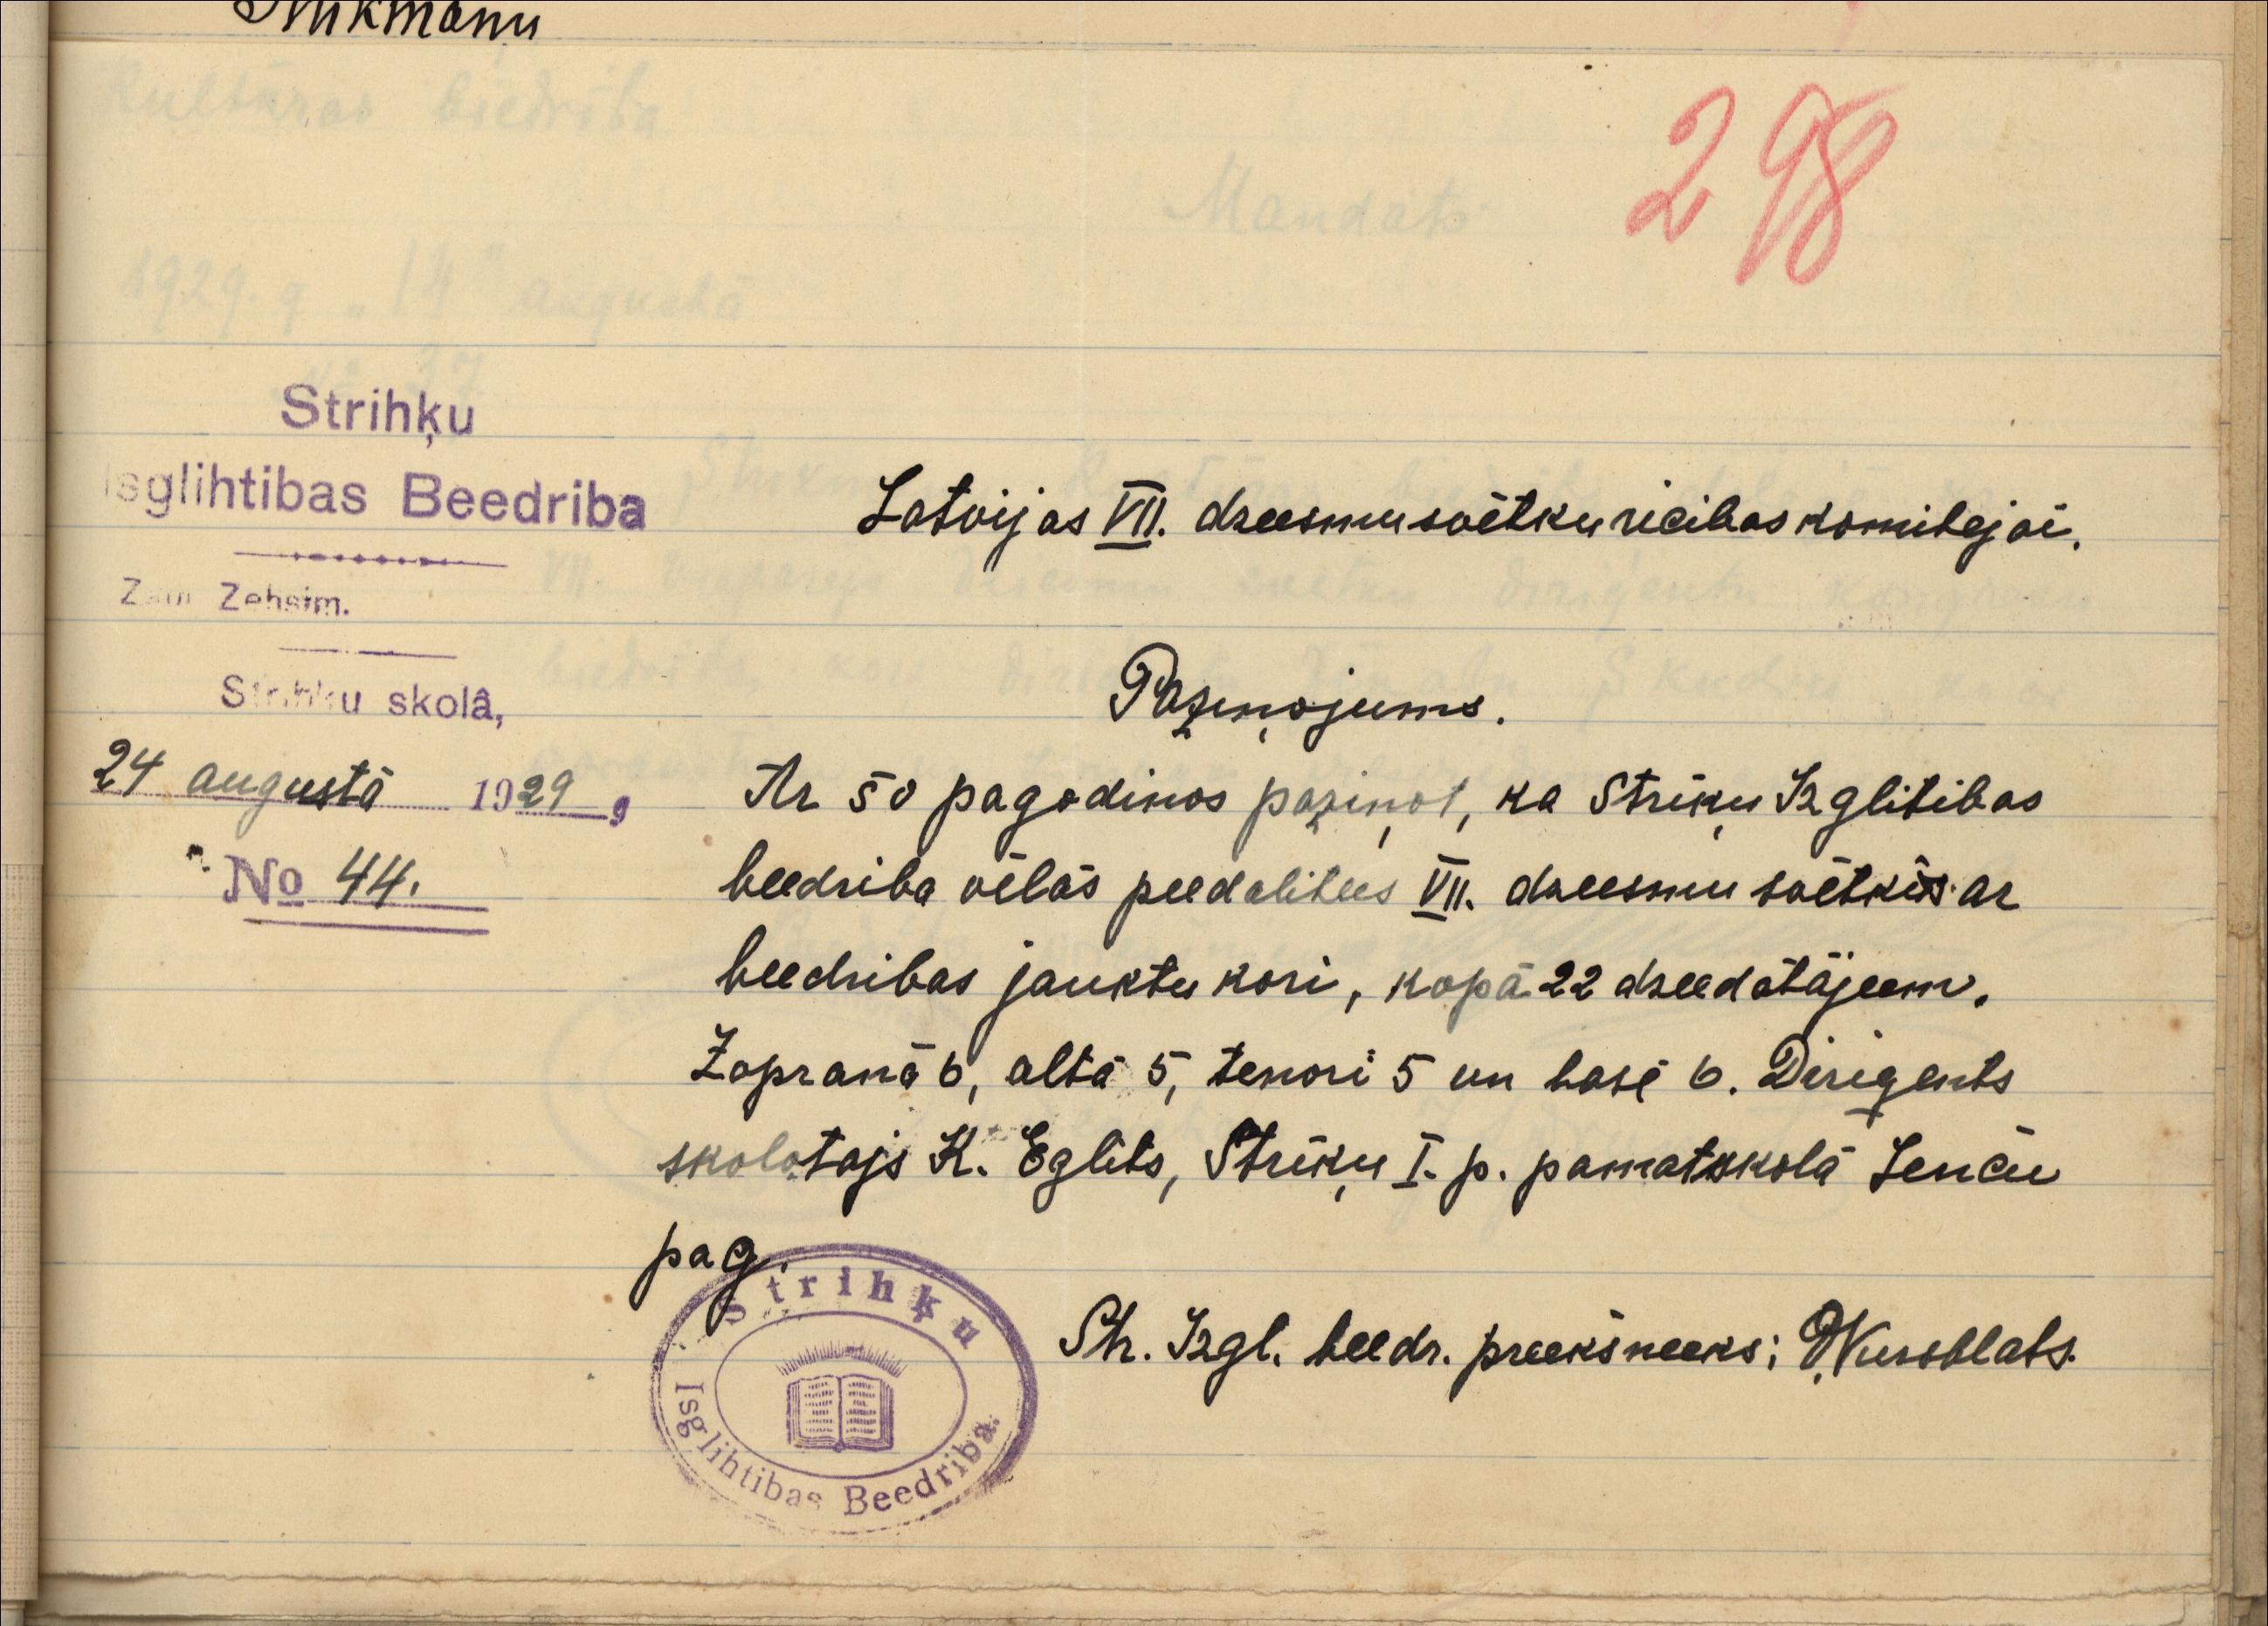 298
Strihķu
Isglihtibas Beedriba
Zehsim.
Strihķu skolâ,
24 augustā 1929 g
No 44.
Latvijas VII. dzeesmu svētku ricibas komitejai.
Paziņojums.
Ar šo pagodinos paziņot, ka Strīķu Izglitibas
beedriba vēlās peedalitees VII. dzeesmu svētkūs ar
beedribas jauktu kori, kopā 22 dzeedātājeem.
Zopranā 6, altā 5, tenori 5 un basi 6. Dirigents
skolotajs K. Eglits, Strīķu I. p. pamatskolā Lenču
pag.
Strihķu
Isglihtibas Beedriba.
Str. Izgl. beedr. preekšneeks: